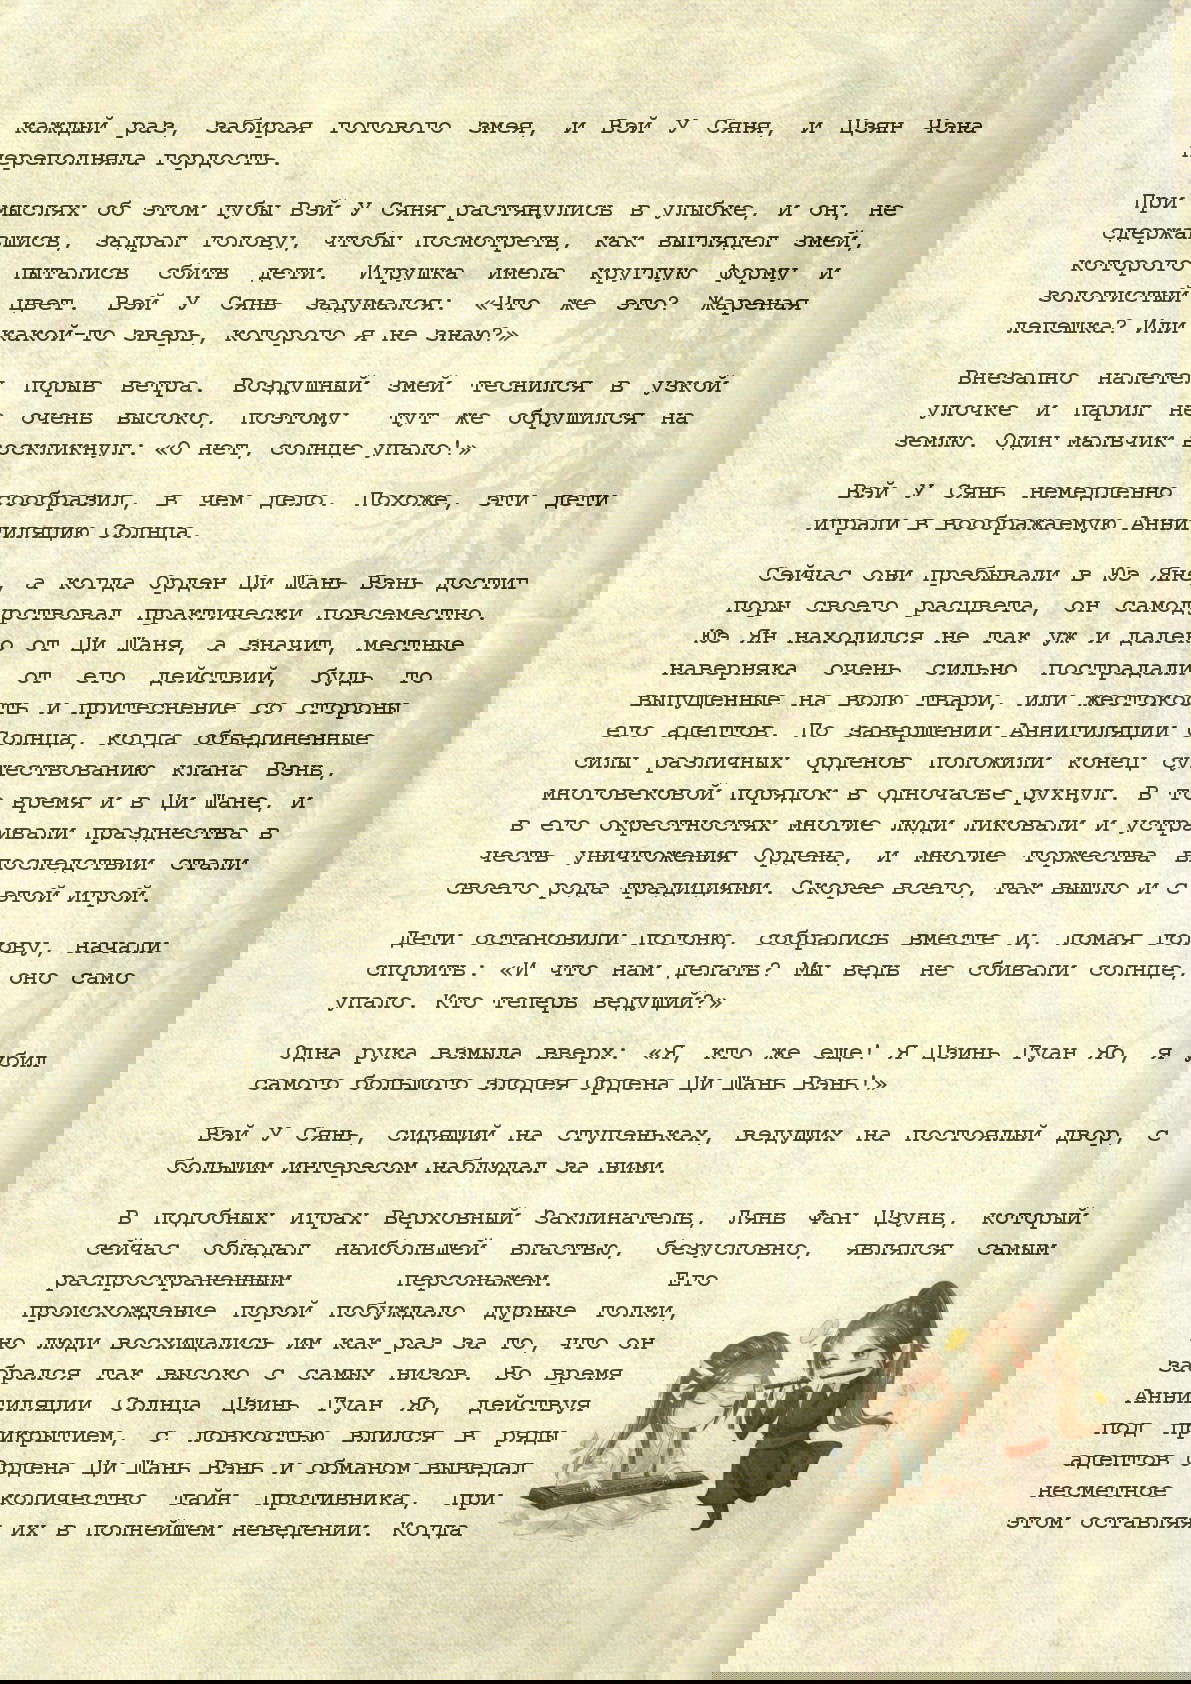 каждый раз, забирая готового змея, и Вэй У Сяня, и Цзян Чэна
переполняла гордость.
При мыслях об этом губы Вэй У Сяня растянулись в улыбке, и он, не
сдержавшись, задрал голову, чтобы посмотреть, как выглядел змей,
которого пытались сбить дети. Игрушка имела круглую форму и
золотистый цвет. Вэй У Сянь задумался: «Что же это? Жареная
лепешка? Или какой-то зверь, которого я не знаю?»
Внезапно налетел порыв ветра. Воздушный змей теснился в узкой
улочке и парил не очень высоко, поэтому тут же обрушился на
землю. Один мальчик воскликнул: «О нет, солнце упало!»
Вэй У Сянь немедленно сообразил, в чем дело. Похоже, эти дети
играли в воображаемую Аннигиляцию Солнца.
Сейчас они пребывали в Юэ Яне, а когда Орден Ци Шань Вэнь достиг
поры своего расцвета, он самодурствовал практически повсеместно.
Юэ Ян находился не так уж и далеко от Ци Шаня, а значит, местные
наверняка очень сильно пострадали от его действий, будь то
выпущенные на волю твари, или жестокость и притеснение со стороны
его адептов. По завершении Аннигиляции Солнца, когда объединенные
силы различных орденов положили конец существованию клана Вэнь,
многовековой порядок в одночасье рухнул. В то время и в Ци Шане, и
в его окрестностях многие люди ликовали и устраивали празднества в
честь уничтожения Ордена, и многие торжества впоследствии стали
своего рода традициями. Скорее всего, так вышло и с этой игрой.
Дети остановили погоню, собрались вместе и, ломая голову, начали
спорить: «И что нам делать? Мы ведь не сбивали солнце, оно само
упало. Кто теперь ведущий?»
Одна рука взмыла вверх: «Я, кто же еще! Я Цзинь Гуан Яо, я убил
самого большого злодея Ордена Ци Шань Вэнь!»
Вэй У Сянь, сидящий на ступеньках, ведущих на постоялый двор, с
большим интересом наблюдал за ними.
В подобных играх Верховный Заклинатель, Лянь Фан Цзунь, который
сейчас обладал наибольшей властью, безусловно, являлся самым
распространенным персонажем. Его
происхождение порой побуждало дурные толки,
но люди восхищались им как раз за то, что он
забрался так высоко с самых низов. Во время
Аннигиляции Солнца Цзинь Гуан Яо, действуя
под прикрытием, с ловкостью влился в ряды
адептов Ордена Ци Шань Вэнь и обманом выведал
несметное количество тайн противника, при
этом оставляя их в полнейшем неведении. Когда